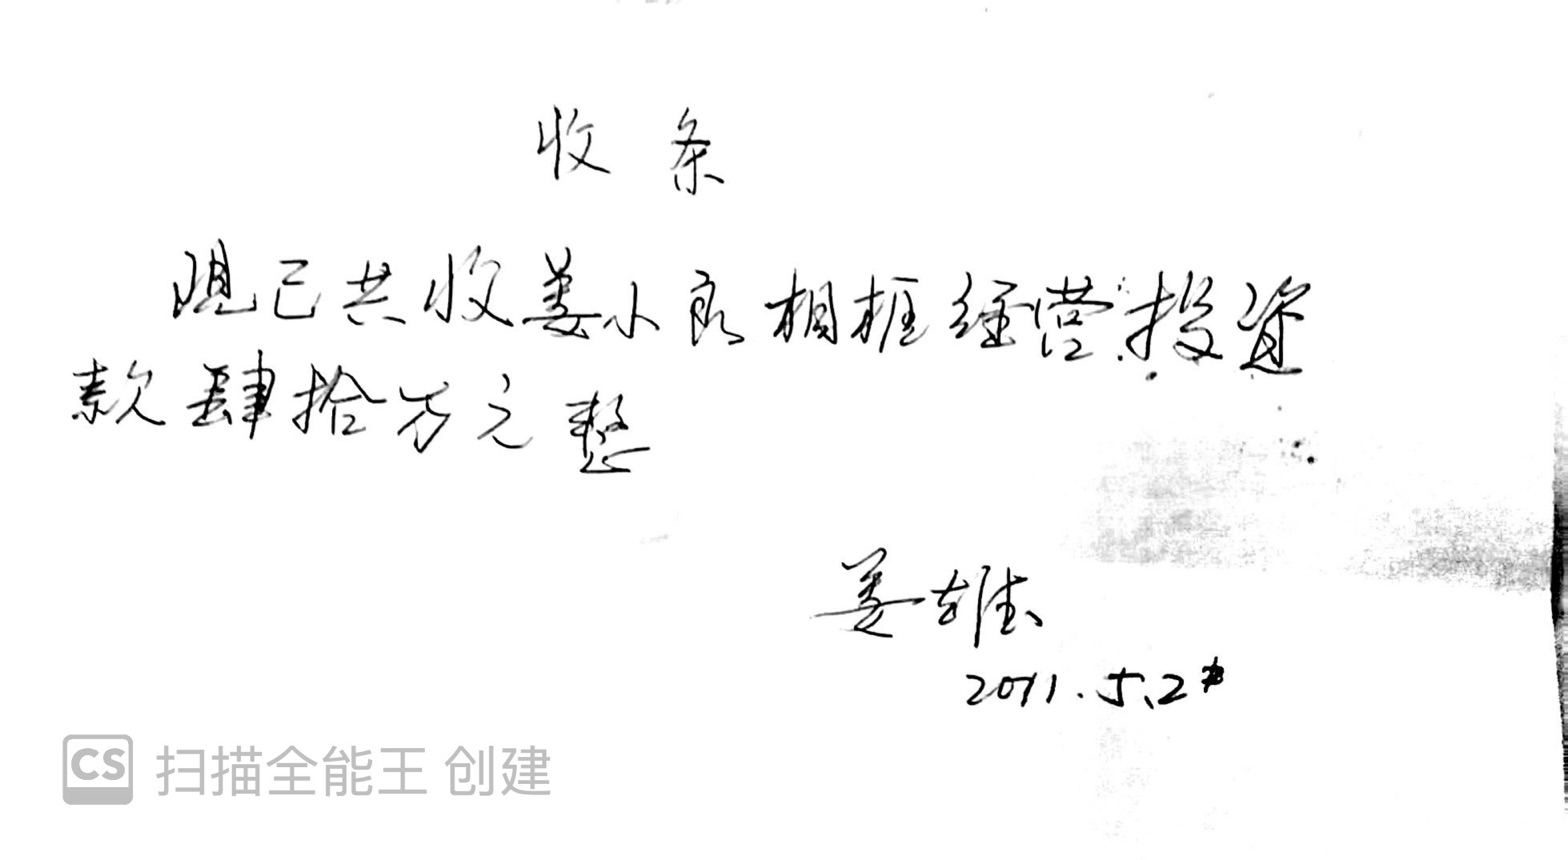 收条
现已共收姜小良相框经营投资
款肆拾万元整
姜雄
2011.5.2
CS 扫描全能王 创建